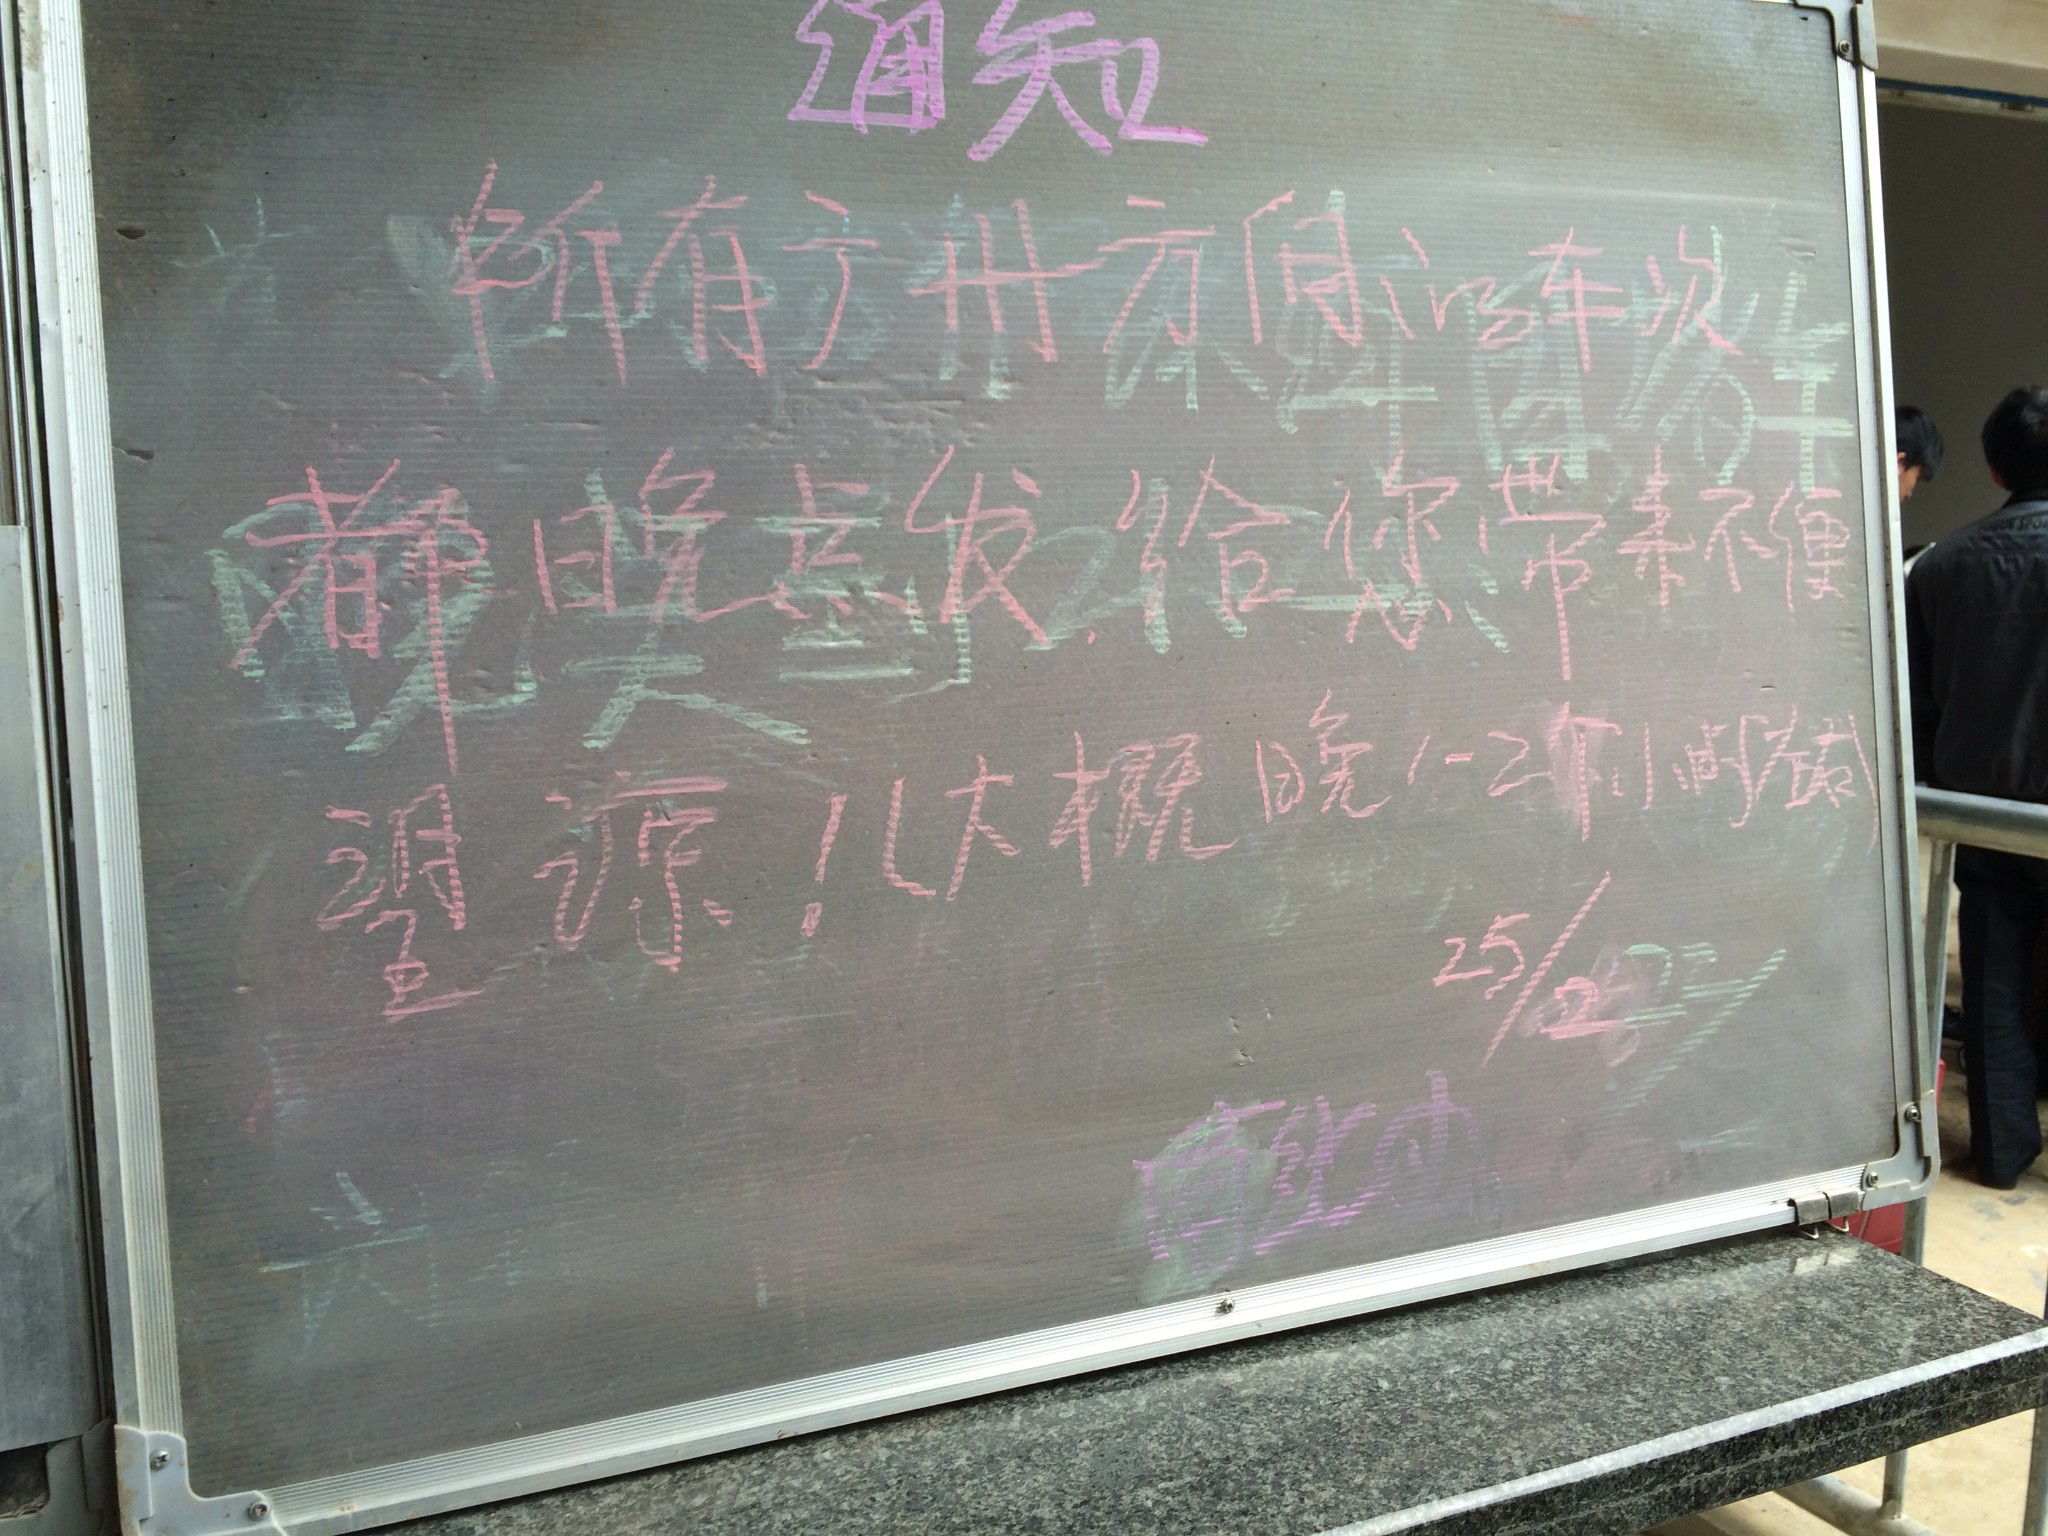 通知
所有广州方向的车次
都晚点发.给您带来不便
望谅!(大概晚1-2个小时左右)
25/2